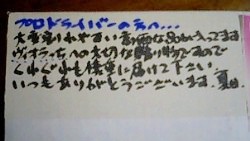 プロドライバーの方へ...
大変壊れやすい高価な品が入ってます
ヴィオラーさんへの大切な贈り物ですので
くれぐれも慎重に届けて下さい。
いつもありがとうございます。